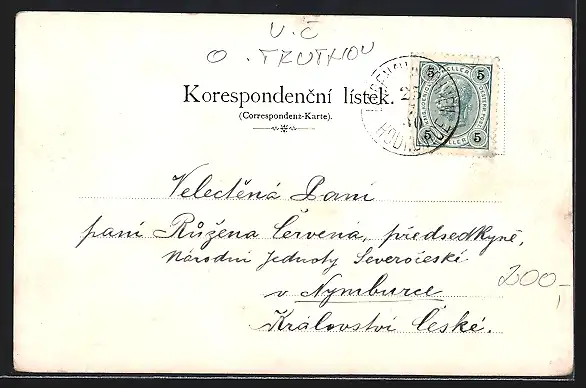 V.Č
O. TRUTNOV
Korespondenční lístek.
(Correspondenz-Karte).
5 HELLER 5
5 HELLER 5
25
Velectěná Paní
paní Růžena Červená, předsedkyně,
Národní Jednoty Severočeské
v Nymburce
Království České.
200,-